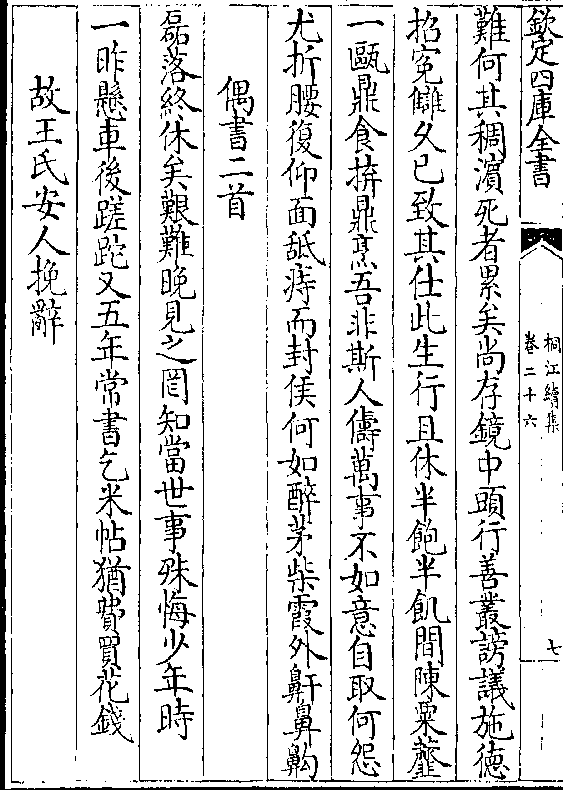 欽定四庫全書
桐江續集
卷二十六
七
難何其稠濵死者累矣尚存鏡中頭行善叢謗議施徳
招寃讎久已致其仕此生行且休半飽半飢間陳粟虀
一甌鼎食拚鼎烹吾非斯人儔萬事不如意自取何怨
尤折腰復仰面舐痔而封侯何如醉茅柴霞外鼾鼻齁
偶書二首
磊落終休矣艱難晚見之罔知當世事殊悔少年時
一昨懸車後蹉跎又五年常書乞米帖猶費買花錢
故王氏安人挽辭